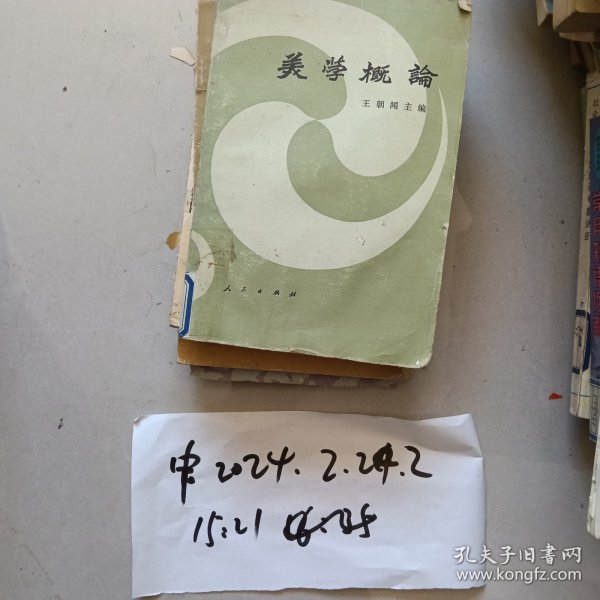 美学概論
王朝闻主编
人民出版社
中2024.2.24.2
15:21
孔夫子旧书网
www.kongfz.com